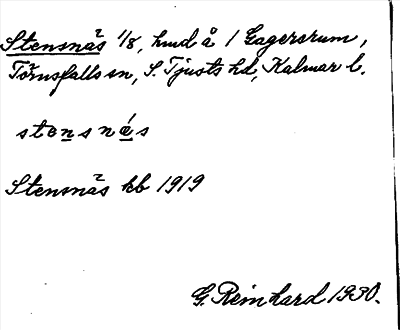 Stensnäs 1/8, hmd å / Gagersrum,
Törnsfalls sn, S. Tjusts hd, Kalmar l.
stensnás
Stensnäs kb 1919
G. Reinhard 1930.